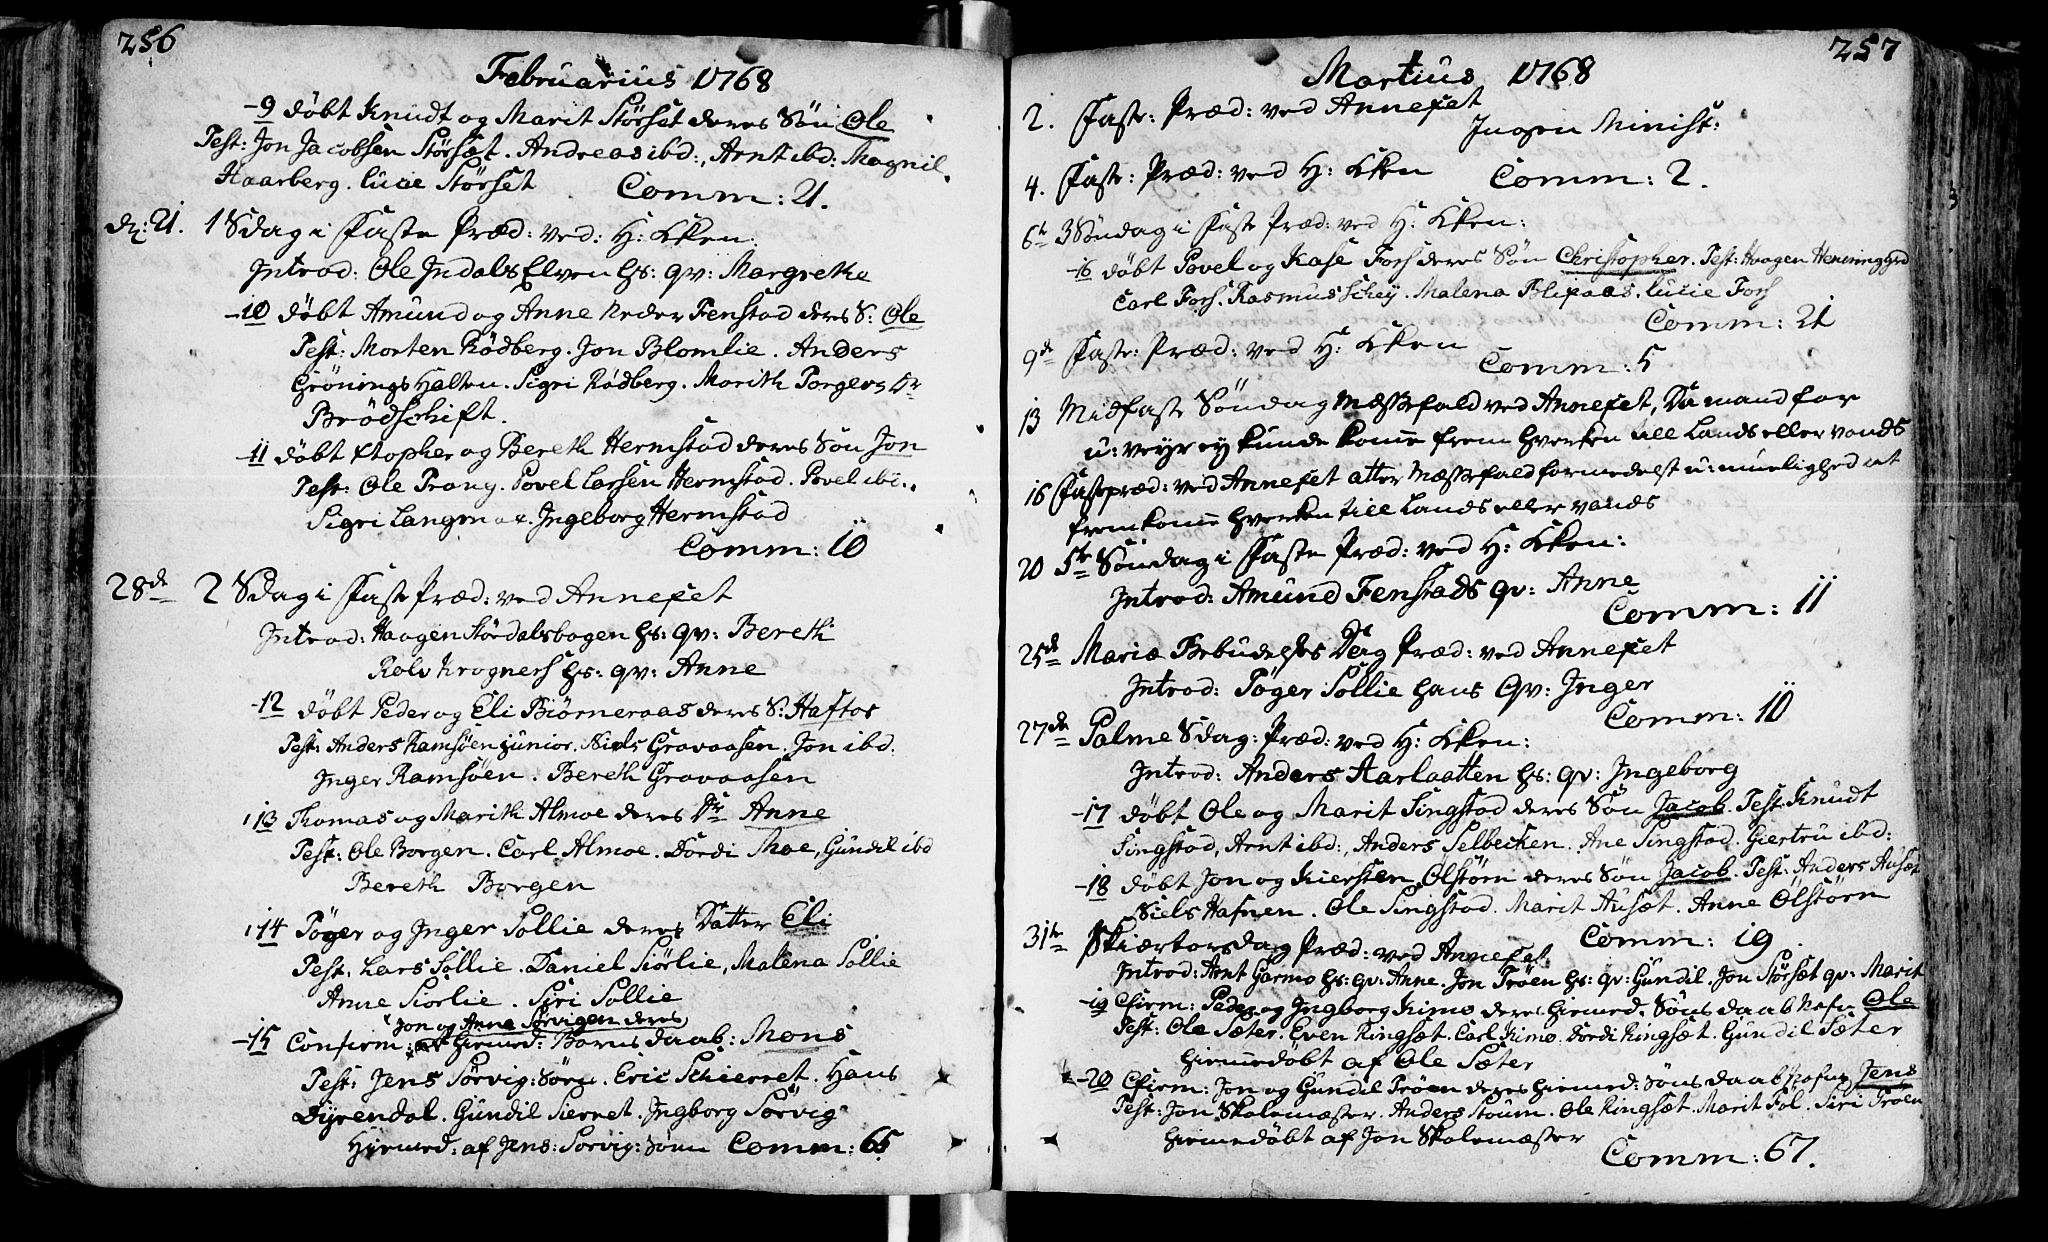 256
Februarius 1768
-9 döbt Knudt og Marit Störset deres Sön Ole
Test: Jon Jacobsen Störsæt. Andreas ibd:, Arnt ibd: Magnil
Haarberg. Lucie Störset Comm: 21.
d: 21. 1 Sdag i Faste Præd: ved: H: Kken:
Introd: Ole Indals Elven hs: qv: Margrethe
-10 döbt Amund og Anne Neder Fenstad deres S: Ole
Test: Morten Rödberg. Jon Blomlie. Anders
Grönings Halten. Sigri Rödberg. Marith Torgers Dr
Brödschift.
-11 döbt Xtopher og Bereth Hermstad deres Sön Jon
Test: Ole Prang. Povel Larsen Hermstad. Povel ibi..
Sigri Langm. Ingeborg Hermstad
Comm: 10
28de 2 Sdag i Faste Præd: ved Annexet
Introd: Haagen Stördalsbagen hs: qv: Bereth
Rolv Krogness hs: qv: Anne
-12 döbt Peder og Eli Biörneraas deres S: Haftor
Test: Anders Ramsöen junior. Niels Gravaasen. Jon ibd.
Inger Ramsöen. Bereth Gravaasen
-13 Thomas og Marith Almoe deres Dr Anne
Test: Ole Borgen. Carl Almoe. Dordi Moe, Gundil ibd
Bereth Borgen
-14 Töger og Inger Sollie deres Datter Eli
Test: Lars Sollie. Daniel Siörlie, Malena Sollie
Anne Siorlie. Siri Sollie
Jon og Anne Sörvigen deres
-15 Confirm: Hiemed: Barns daab: Mons
Test: Jens Sörvig: Sörn. Eric Schierret. Hans
Dyrendal. Gundil Sierret. Ingborg Sörvig
Hiemed: af Jens: Sorvig: Sönn Comm: 65
257
Martius 1768
2. Faste: Præd: ved Annexet
Ingen Minist:
4. Faste: Præd: ved H: Kken Comm: 2.
6te 3 Söndag i Faste Præd: ved H: Kken:
-16 döbt Povel og Kase Fosh deres Sön Christopher. Test: Haagen Henninggrd
Carl Fosh. Rasmus Schey. Malena Blixaas. Lucie Fosh
Comm: 21
9de Faste: Præd: ved H: Kken
Comm: 5
13 Midfaste Söndag Mæssefald ved Annexet, Da mand for
u: veyr ey kunde komme frem hverken till Lands eller vands
16 Fastepræd: ved Annexet atter Mæssefald formedelst u: muelighed at
fremkomme hverken till Lands eller vands
20 5te Söndag i Faste Præd: ved H: Kken:
Introd: Amund Fenstads qv: Anne
Comm: 11
25de Mariæ Bebudelses Dag Præd: ved Annexet
Introd: Töger Sollie hans Qv: Inger
Comm: 10
27de Palme Sdag: Præd: ved H: Kken:
Introd: Anders Aarlaatten hs: qv: Ingeborg
-17 döbt Ole og Marit Singstad deres Sön Jacob. Test: Knudt
Singstad, Arnt ibd:, Anders Selbecken. Ane Singstad. Giertru ibd:
-18 döbt Jon og Kiersten Olstörn deres Sön Jacob. Test: Anders Ausæt
Niels Hafnen. Ole Singstad. Marit Ausæt. Anne Olstörn
Comm: 19.
31te Skiærtorsdag Præd: ved Annexet.
Introd: Arnt Garmo hs: qv: Anne. Jon Tröen hs: qv: Gundil. Jon Störsæt qv: Marit
-19 Cfirm: Peder og Ingborg Kimo deres hiemed. Söns daab Nafn Ole
Test: Ole Sæter. Even Ringsæt. Carl Kimo. Dordi Ringsæt. Gundil Sæter
Hiemedöbt af Ole Sæter
-20 Cfirm: Jon og Gundil Tröen deres hiemed: Söns daab Nafn Jens
Test: Jon Skolemæster. Anders Stoum. Ole Ringsæt. Marit Fol. Siri Tröen
hiemedöbt af Jon Skolemæster
Comm: 67.